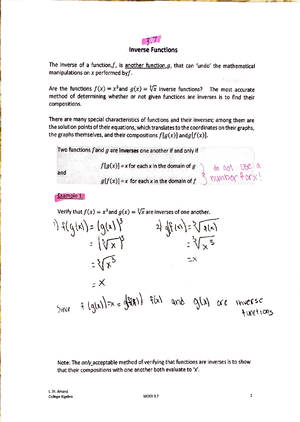 3.7
Inverse Functions
The inverse of a function, f, is another function g, that can 'undo' the mathematical
manipulations on x performed by f.
Are the functions f(x) = x³ and g(x) = ∛x inverse functions? The most accurate
method of determining whether or not given functions are inverses is to find their
compositions.
There are many special characteristics of functions and their inverses; among them are
the solution points of their equations, which translates to the coordinates on their graphs,
the graphs themselves, and their compositions f[g(x)] and g[f(x)].
Two functions f and g are inverses one another if and only if
f[g(x)] = x for each x in the domain of g
and
g[f(x)] = x for each x in the domain of f
do not use a
number for x!
Example 1
Verify that f(x) = x³ and g(x) = ∛x are inverses of one another.
1) f(g(x)) = (g(x))³
= (∛x)³
= ∛x³
= x
2) g(f(x)) = ∛f(x)
= ∛x³
= x
Since f(g(x)) = x = g(f(x)) f(x) and g(x) are inverse
functions
Note: The only acceptable method of verifying that functions are inverses is to show
that their compositions with one another both evaluate to 'x'.
L. St. Amand
College Algebra
MODI 3.7
1